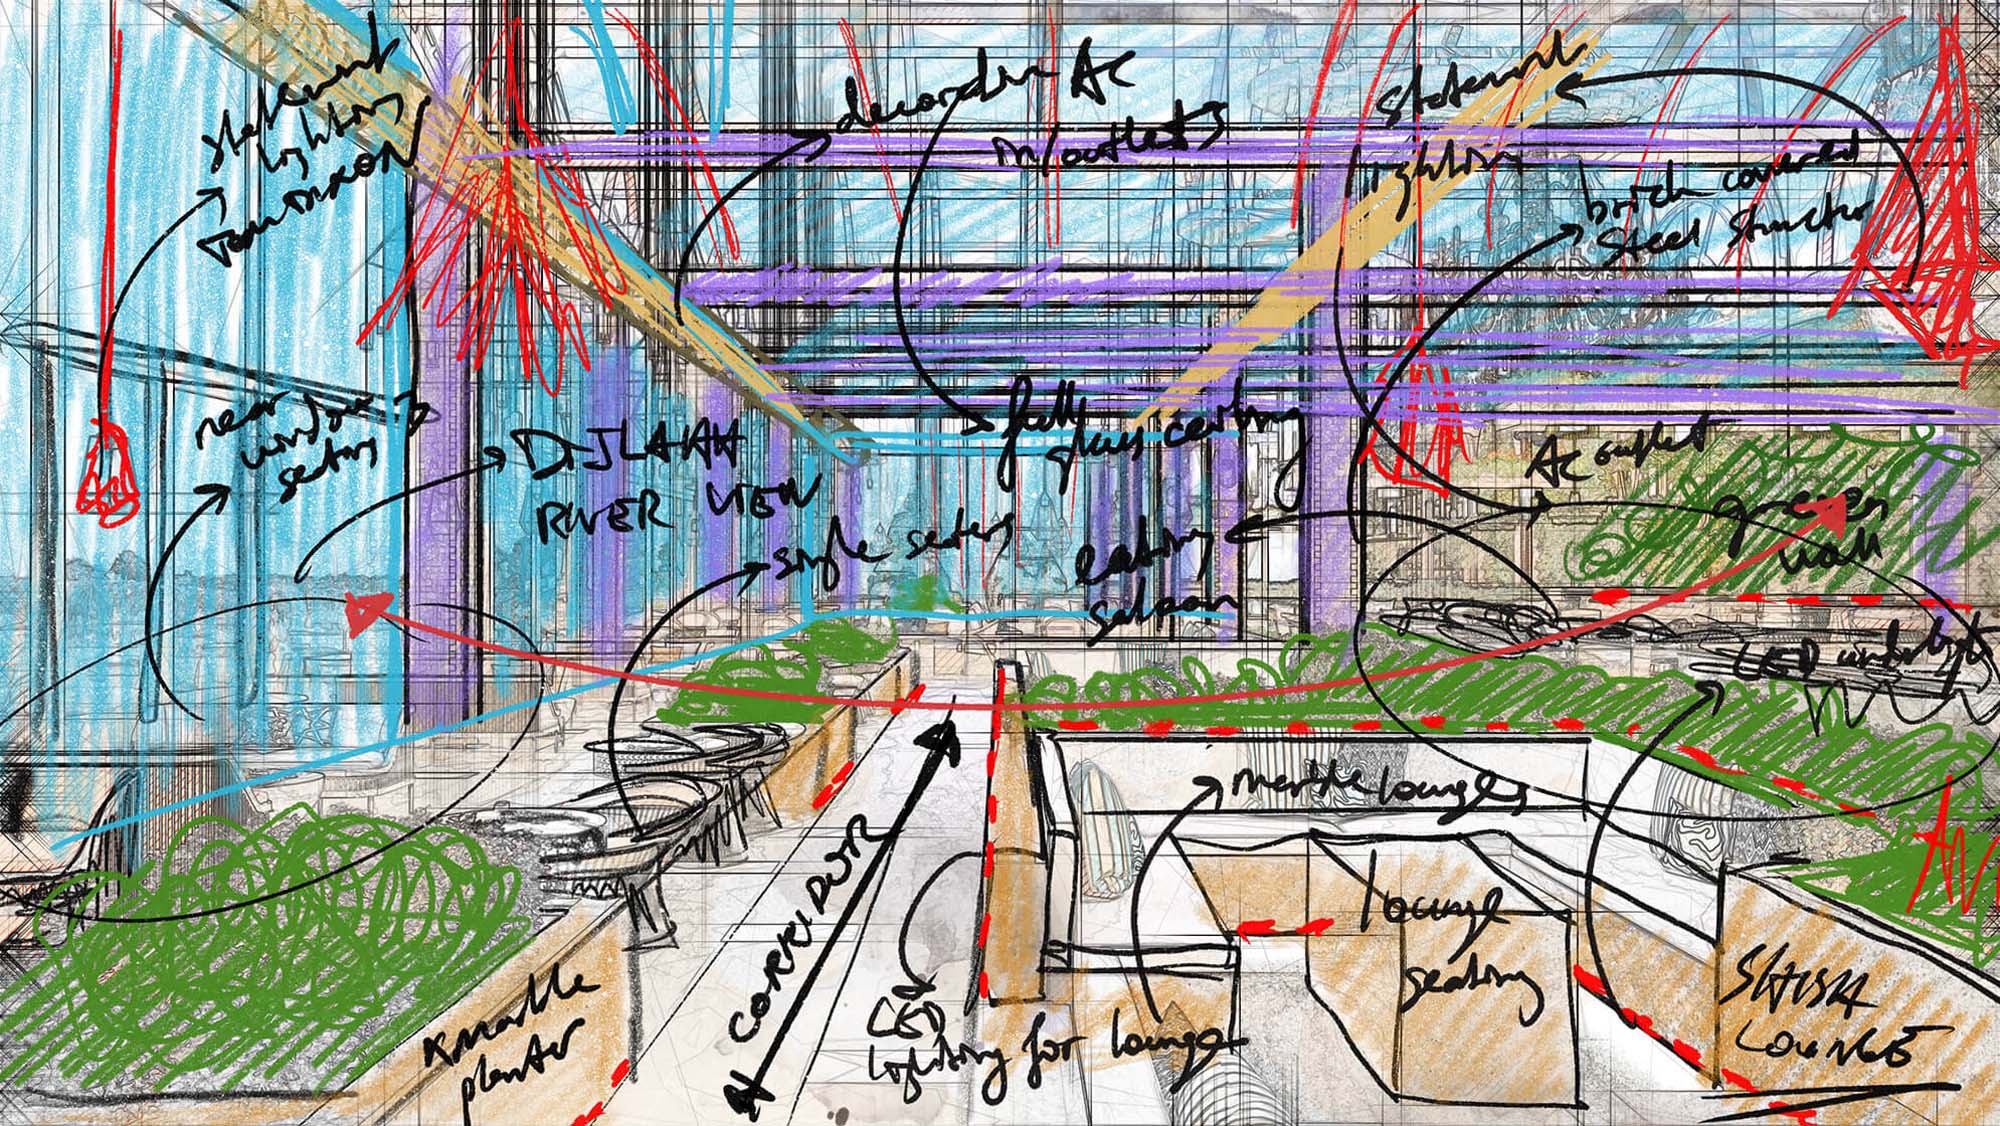 statement
lighting
decorative AC
in/outlets
statement
lighting
brick covered
steel structur
near
window
seating
DIJLAHH
RIVER VIEW
full
glass ceiling
AC outlet
green
wall
single seaters
eating
saloon
LED underlight
marble lounges
lounge
seating
SHISHA
LOUNGE
CORRIDOR
marble
planter
LED
lighting for lounge